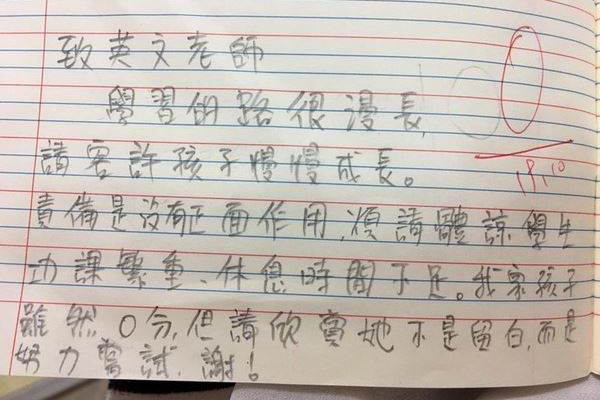 致英文老師
學習的路很漫長,
請容許孩子慢慢成長。
責備是沒有正面作用,煩請體諒學生
功課繁重、休息時間不足。我家孩子
雖然0分,但請欣賞她不是留白,而是
努力嘗試,謝!
0